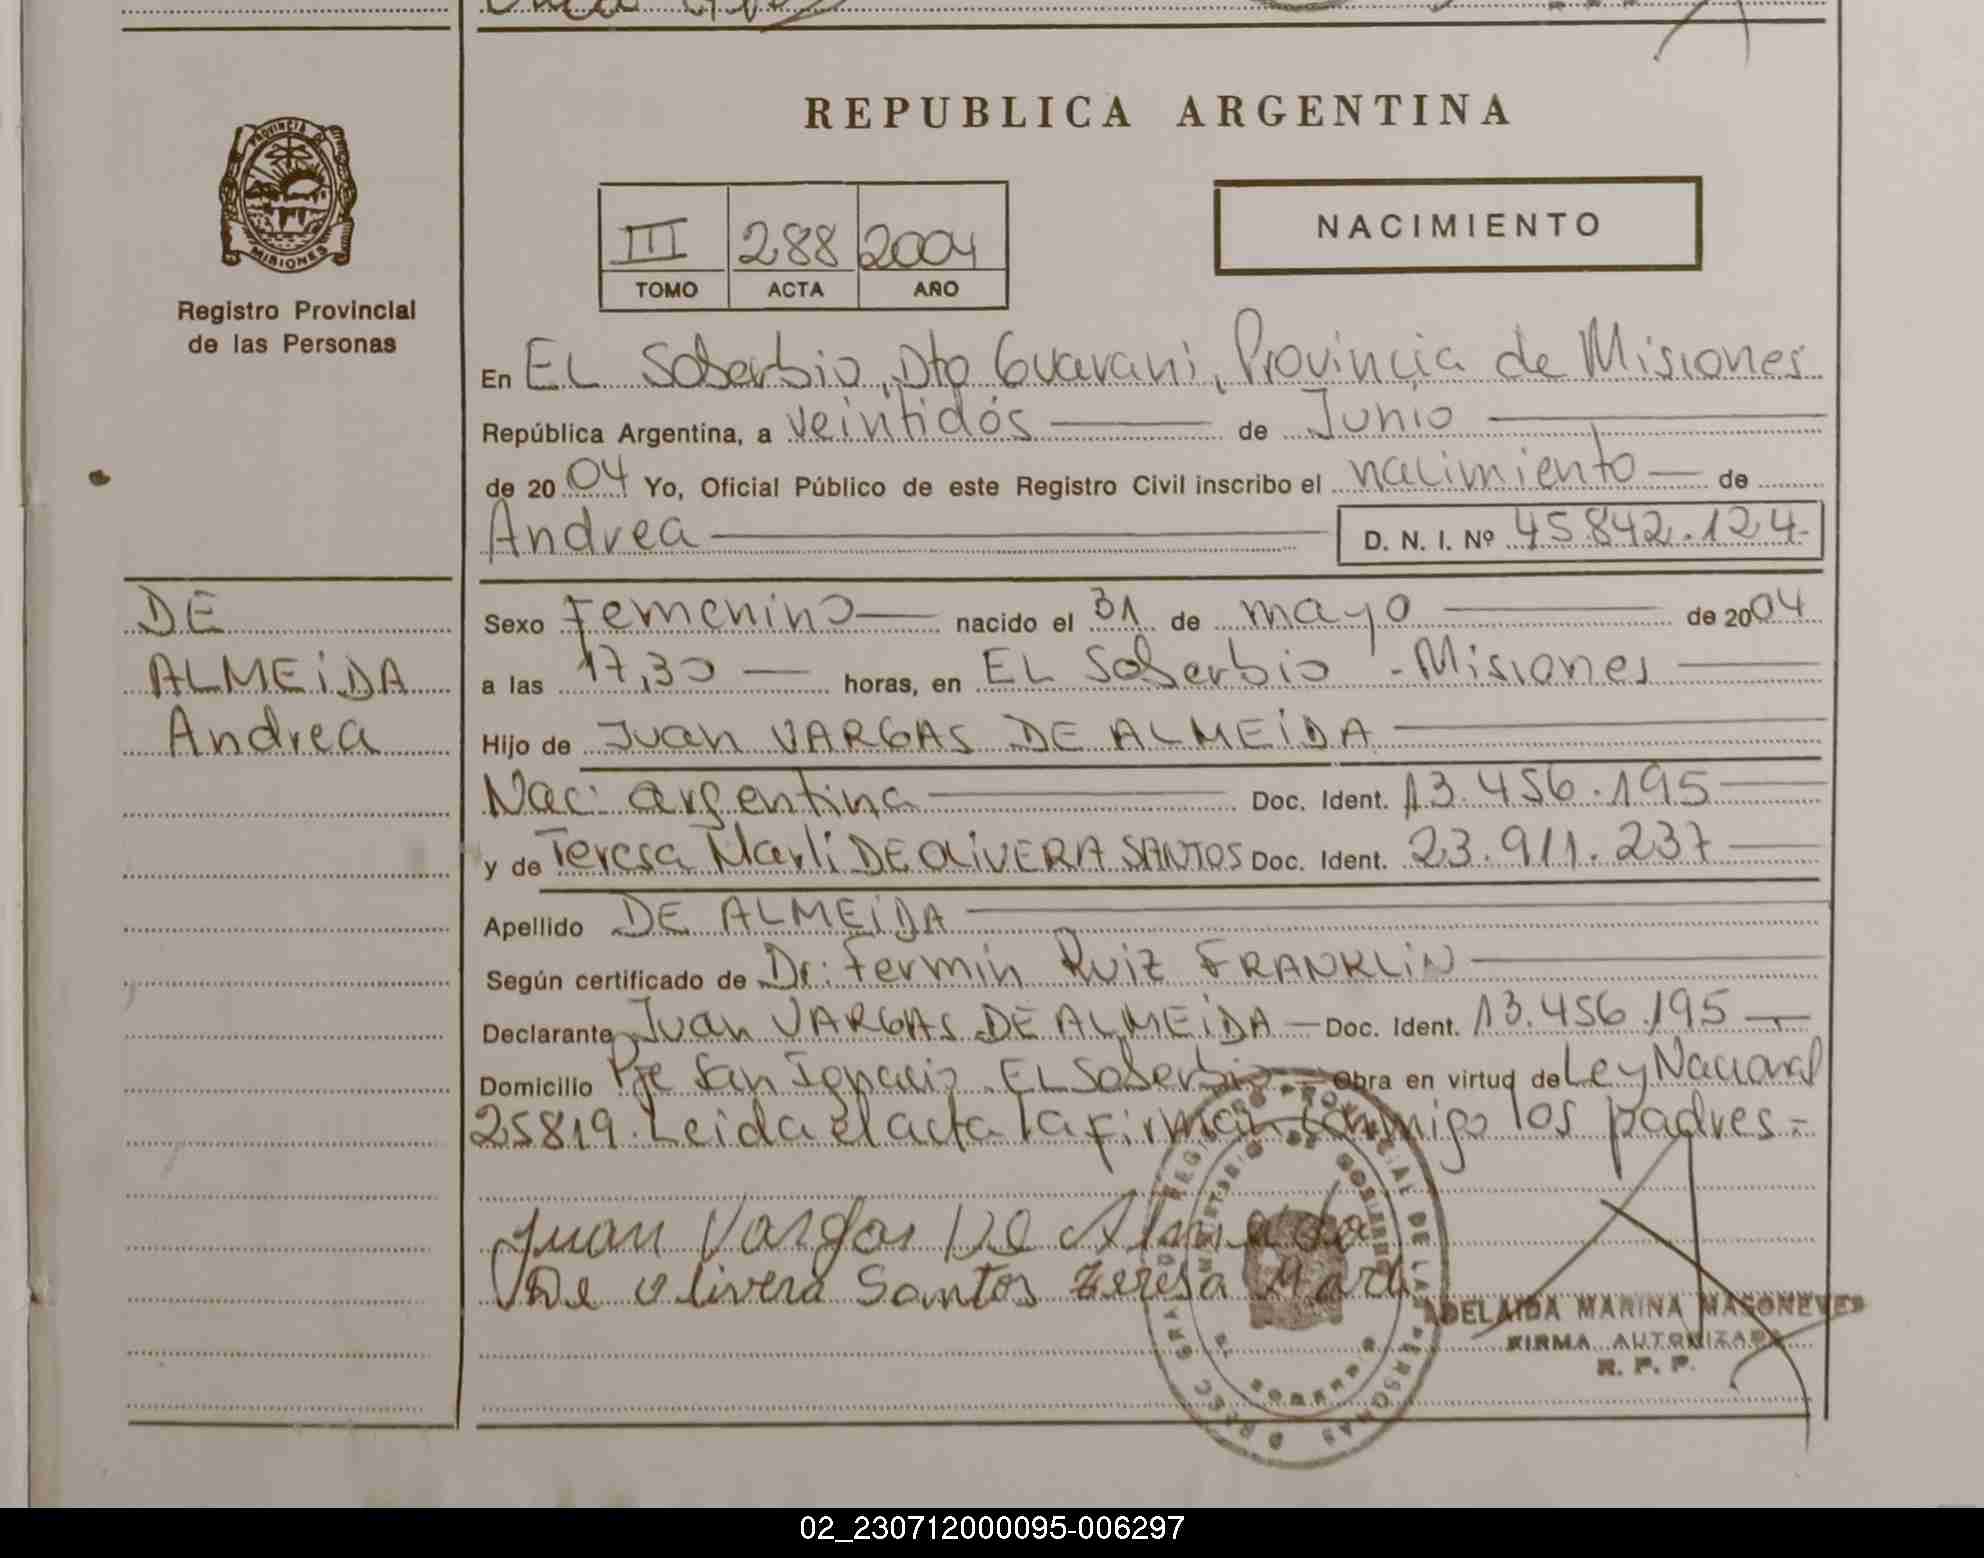 REPUBLICA ARGENTINA
PROVINCIA DE
MISIONES
Registro Provincial
de las Personas
III 288 2004
TOMO ACTA AÑO
NACIMIENTO
En EL Soberbio, Dto Guarani, Provincia de Misiones
República Argentina, a veintidós de Junio
de 2004 Yo, Oficial Público de este Registro Civil inscribo el nacimiento de
Andrea D. N. I. Nº 45.842.124-
DE
ALMEiDA
Andrea
Sexo Femenino nacido el 31 de mayo de 2004
a las 17,30 horas, en EL Soberbio - Misiones
Hijo de Juan VARGAS DE ALMEiDA
Nac: argentina Doc. Ident. 13.456.195
y de Teresa Marli DE OLiVERA SANTOS Doc. Ident. 23.911.237
Apellido DE ALMEiDA
Según certificado de Dr: Fermin Ruiz FRANKLiN
Declarante Juan VARGAS DE ALMEiDA Doc. Ident. 13.456.195
Domicilio Pje San Ignacio EL Soberbio Obra en virtud de Ley Nacional
25819. Leida el acta la firman conmigo los padres =
Juan Vargas De Almeida
De Olivera Santos Teresa Marli
ADELAIDA MARINA MAGONEVES
FIRMA AUTORIZADA
R. P. P.
REGISTRO PROVINCIAL DE LAS PERSONAS
MINISTERIO DE GOBIERNO
02_230712000095-006297